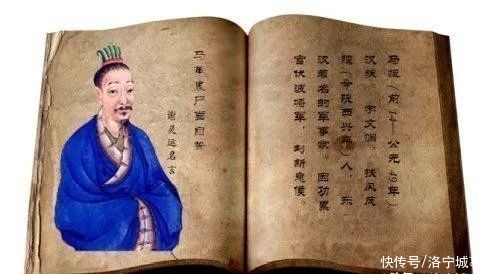 马革裹尸当自誓
谢灵运名言
马援（前14—公元49年）
汉族，字文渊。扶风茂
陵（今陕西兴平）人，东
汉著名的军事家。因功累
官伏波将军，封新息侯。
快传号/洛宁城